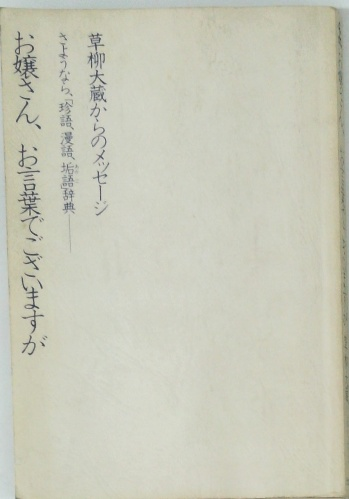 草柳大蔵からのメッセージ
さようなら、「珍語、漫語、垢語」辞典――
お嬢さん、お言葉でございますが